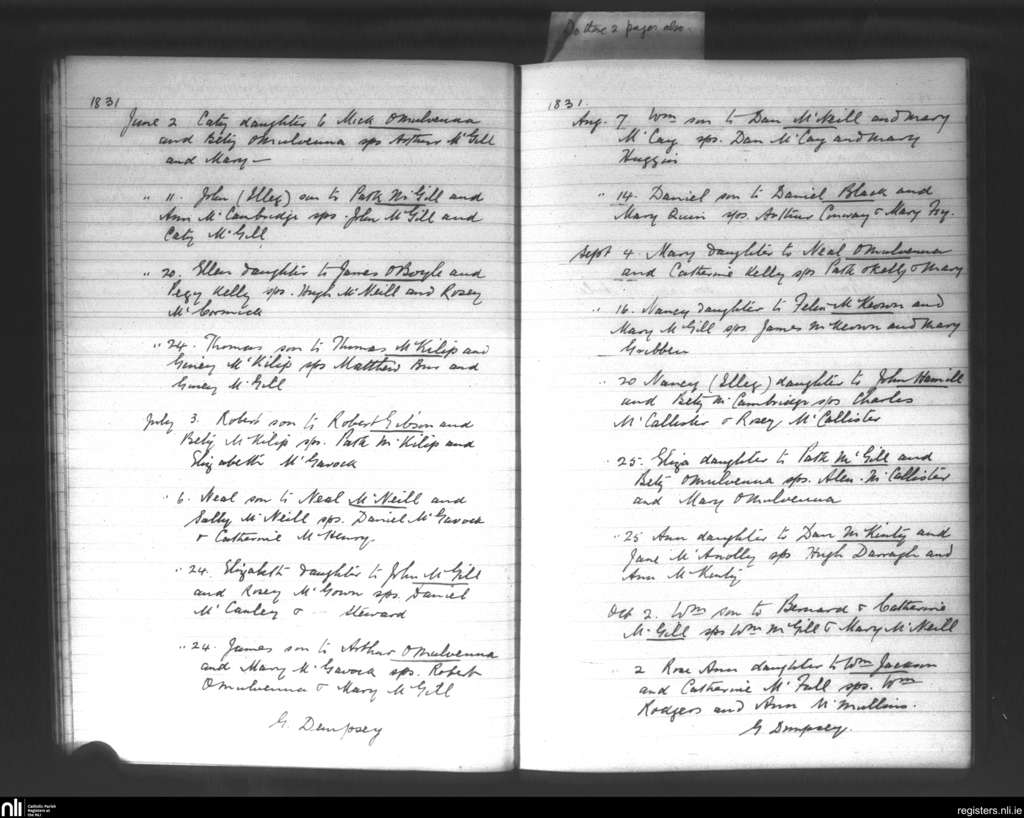 Do these 2 pages also.
1831
June 2 Caty daughter to Mick OMulvenna
and Betty OMulvenna sps Arthur McGill
and Mary —
" 11. John (Illeg) son to Patk McGill and
Ann McCambridge sps. John McGill and
Caty McGill
" 20. Ellen daughter to James OBoyle and
Peggy Kelly sps. Hugh McNeill and Rosey
McCormick
" 24. Thomas son to Thomas McKilip and
Giney McKilip sps Matthew and
Giney McGill
July 3. Robert son to Robert Gibson and
Betty McKilip sps. Patk McKilip and
Elizabeth McGavock
" 6. Neal son to Neal McNeill and
Sally McNeill sps. Daniel McGavock
& Catherine McHenry
" 24. Elizabeth daughter to John McGill
and Rosey McGown sps. Daniel
McCauley & — Steward
" 24. James son to Arthur OMulvenna
and Mary McGavock sps. Robert
OMulvenna & Mary McGill
G. Dempsey
1831.
Aug. 7 Wm son to Dan McNeill and Mary
McCay sps. Dan McCay and Mary
Huggin
" 14. Daniel son to Daniel Black and
Mary Quin sps. Arthur Conway & Mary
Sept 4. Mary daughter to Neal OMulvenna
and Catherine Kelly sps Patk OKelly & Mary
" 16. Nancy daughter to Felix McKeown and
Mary McGill sps James McKeown and Mary
Gribben
" 20 Nancy (Illeg) daughter to John Hamill
and Betty McCambridge sps Charles
McCallister & Rosey McCallister
" 25. Eliza daughter to Patk McGill and
Betty OMulvenna sps. Alex. McCallister
and Mary OMulvenna
" 25 Ann daughter to Dan McKinty and
Jane McAnolly sps Hugh Darragh and
Ann McKinty
Oct 2. Wm son to Bernard & Catherine
McGill sps Wm McGill & Mary McNeill
" 2 Rose Ann daughter to Wm Jackson
and Catherine McFall sps. Wm
Rodgers and Ann McMullins.
G Dempsey.
nli
Catholic Parish
Registers at
the NLI
registers.nli.ie